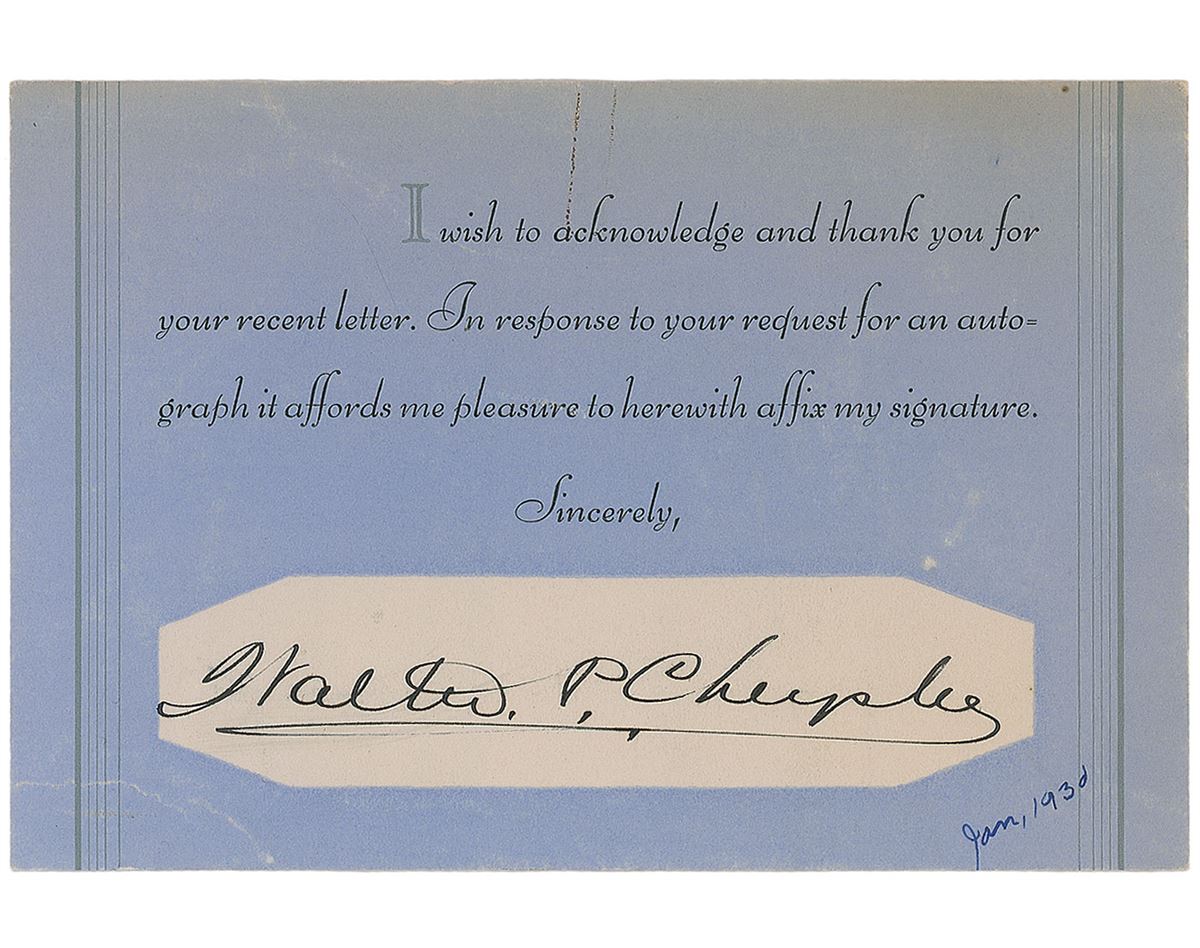 I wish to acknowledge and thank you for
your recent letter. In response to your request for an auto=
graph it affords me pleasure to herewith affix my signature.
Sincerely,
Walter. P. Chrysler
Jan, 1930